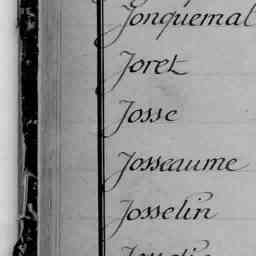 Jonquemal
Joret
Josse
Josseaume
Josselin